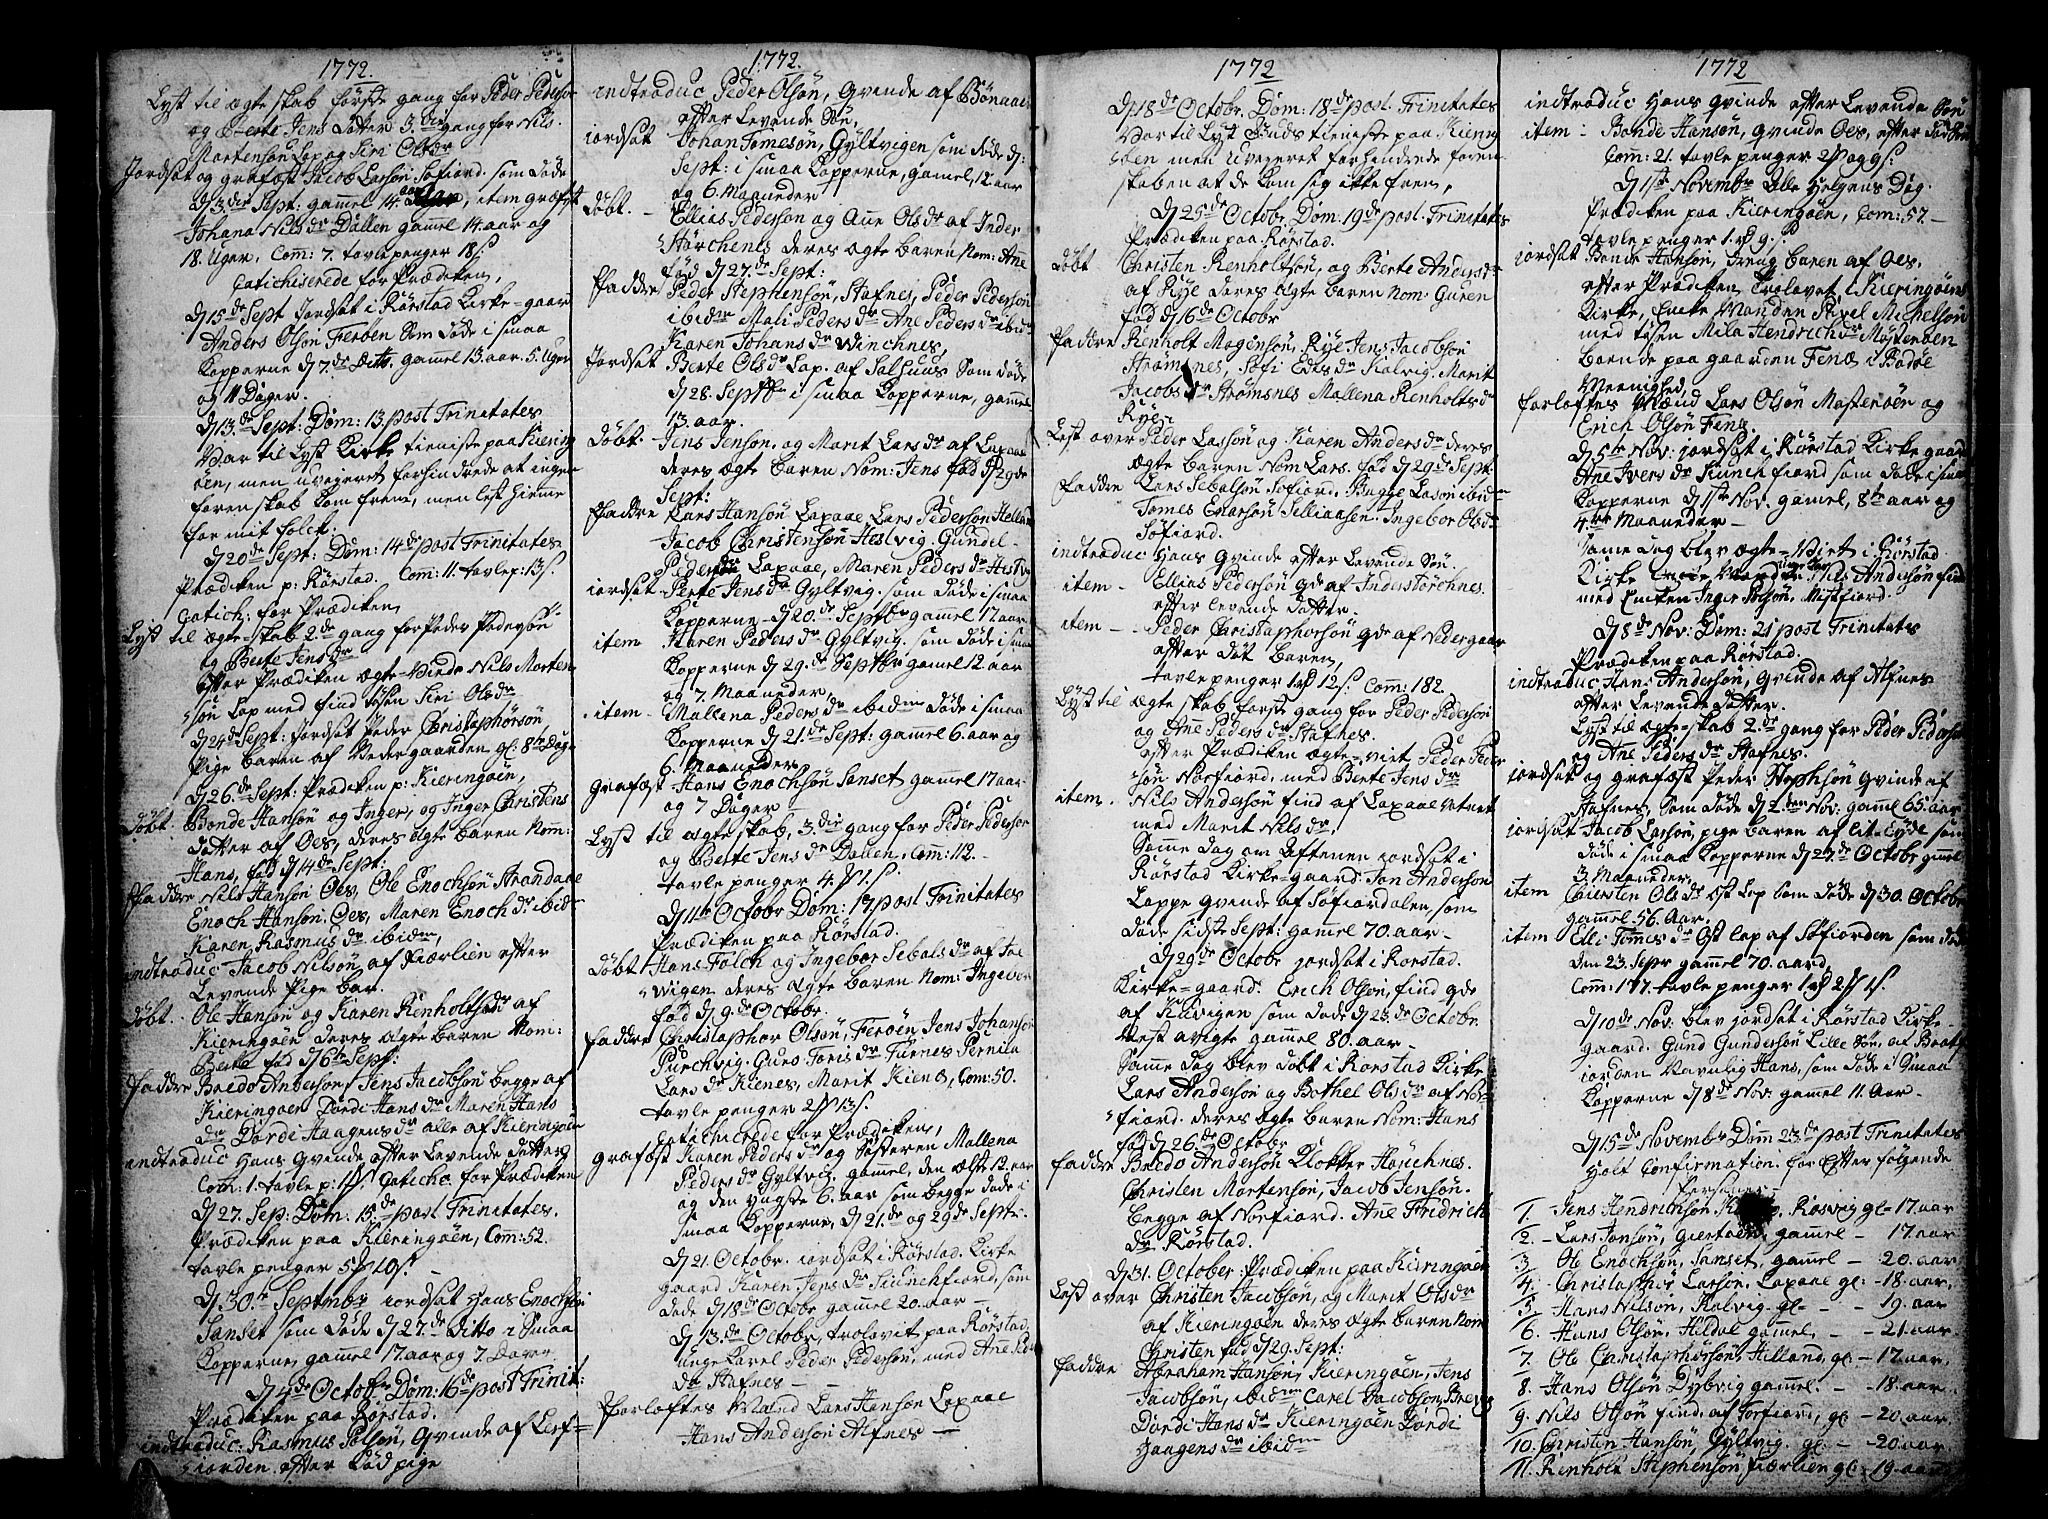 1772.
Lyst til ægte skab første gang for Peder Pederson
og Berte Jens Datter 3.die gang for Nils
Mortensøn Lap og Siri Olsdr
Jordsat og grafæst Jacob Larsøn Søfiord. som døde
d 3.die Sept: gamel 14. aar, item græfæst
Johana Nils dr Dallen gamel 14. aar og
18. Uger, Com: 7. tavle penger 18 s
Catichiserede for Prædiken,
d 15de Sept Jordsat i Rørstad Kirke=gaar
Anders Olsøn Ferøen Som døde i smaa
Kopperne d 7de Ditto. gamel 13. aar. 5. Uger
og 11 Dager.
d 13.de Sept: Dom: 13. post Trinitates
Var til Lyst Kirke tieniste paa Kiering
øen, men uveiret forhindrede at ingen
foren skab Kom frem, men lest hiemme
for mit folck:
d 20de Sept: Dom: 14de post Trinitates
Prædiken p: Rørstad. Com: 11. tavle p: 13 s
Catich: for Prædiken,
Lyst til ægte-skab 2.de gang for Peder Pedersøn
og Berte Jens dr
Efter Prædiken ægte-Viede Nils Morten
søn Lap med find tøsen Siri Ols dr
d 24de Sept: Jordsat Peder Christophersøn
Pige baren af Nedergaarden gl: 8te Dage
d 26.de Sept: Prædiken p: Kieringøen,
Døbt. Bonde Hansøn og Inger, og Inger Christens
datter af Oes, deres ægte baren Nom:
Hans, fød d 14de Sept:
Faddre Nils Hansøn Oes, Ole Enochsøn Strandaae
Enoch Hansøn. Oes, Maren Enoch dr ibid
Karen Rasmus dr ibidm,
indtraduc Jacob Nilsøn af Fiærlien efter
Levende Pige bar.
Døbt. Ole Hansøn og Karen Rienholts dr af
Kieringøen deres ægte baren Nom:
Berte fød d 6te Sept:
Faddre Bredo Anderson, Jens Jacobsøn begge af
Kieringøen Dordi Hans dr Maren Hans
dr Dordi Haagens dr alle af Kieringøen
indtraduc Hans Qvinde efter Levende datter
Com: 1. tavle p: 1 s Catiche. for Prædiken
d 27. Sep: Dom: 15de post Trinitates.
Prædiken paa Kieringøen, Com: 52.
tavle penger 5 10 s.
d 30te Septmbr iordsat Hans Enochsøn
Sanset som døde d 27.de Ditto i Smaa
Kopperne, gammel 17 aar og 7. Dager
d 4de Octobr Dom: 16de post Trinit:
Prædiken paa Rørstad.
indtraduc: Rasmus Polsøn, Qvinde af Leif=
iorden. efter Død pige
1772.
indtraduc Peder Olsøn, Qvinde af Bonaae
efter Levende Søn,
iordsat Johan Tomesøn, Gyltvigen som døde d:
Sept: i smaa Kopperne, gamel, 12 aar
og 6. Maaneder
Døbt. - Ellias Pedersøn og Ane Ols dr af Inder
Størchenes deres ægte baren Nom: Ane
fød d 27.de Sept:
Faddre Peder Stephensøn, Stafnes, Peder Pedersøn
ibidm Mali Peders dr Ane Peders dr ibid
Karen Johans dr Winchnes
Jordsat Berte Ols dr Lap. af Salhuus Som døde
d 28. Septbr i smaa Kopperne, gammel
13. aar.
Døbt. Jens Jensøn. og Marit Lars dr af Laxaae
deres ægte baren Nom: Jens fød d 29de
Sept:
Faddre Lars Hansøn Laxaae Lars Pedersøn Helland
Jacob Christensøn Hestvig. Gundel
Peders dr Laxaae, Maren Peders dr Hestv
iordsat Berte Jens dr Gyltvig. som døde i smaa
Kopperne d 20.de Septbr gammel 17 aar
item Karen Peders dr Gyltvig. som døde i smaa
Kopperne d 29.de Septbr gamel 12. aar
og 7. Maaneder,
item - Mallena Peders dr ibidm døde i smaa
Kopperne d 21.de Sept: gammel 6. aar og
6. Maaneder
grafæst Hans Enochsøn Sanset gammel 17 aar
og 7 Dager
Lyst til ægte skab, 3.die gang for Peder Pedersøn
og Berte Jens dr Dallen. Com: 112. -
tavle penger 4. 1 s. -
d 11te Octobr Dom: 17 post Trinitates
Prædiken paa Rørstad.
Døbt Hans Falch og Ingebor Sebals dr af
Wigen deres ægte baren Nom: Ingebor
fød d 9de Octobr.
Faddre Christopher Olsøn, Ferøen Jens Johansen
Purchvig. Gurs Joris dr Furnes Pernila
Lars dr Kienes, Marit Kienes, Com: 50.
tavle penger 2 13 s.
Catichicrede for Prædiken,
grafæst Karen Peders dr og Søsteren Mallena
Peders dr Gyltvig. gammel, den ælste 12. aar
og den Yngste 6. aar som begge døde i
smaa Kopperne, d 21.de og 29de Septr.
d 21. Octobr. iordsat i Rørstad. Kirke
gaard Karen Jens dr Siunchfiord, som
døde d 18de Octobr gammel 20. aar -
d 13.de Octobr, trolovit paa Rørstad.
unge Karel Peder Pedersøn, med Ane Peders
dr Stafnes -
Forloftes Mænd Lars Hansøn Laxaae
Hans Andersøn Alfnes -
1772
d 18de Octobr. Dom: 18de post Trinitates
Var til Lyst Guds tieneste paa Kiering
øen men Uveyeret forhindrede foren
skaben at de Kom sig ikke frem,
d 25de Octobr Dom: 19de post Trinitates
Prædiken paa Rørstad.
Døbt Christen Renholtsøn, og Berte Anders dr
af Rye deres ægte baren Nom: Guren
fød d 16de Octobr
Faddre Rienholt Mogensøn, Rye Jens Jacobsøn
Strømsnes, Søfi Edis dr Kalvig. Marit
Jacobs dr Strømsnes Mallena Renholts dr
Rye -
Lest over Peder Lassøn og Karen Anders dr deres
ægte baren Nom Lars. fød d 29de Sept:
Faddre Lars Sebalsøn Søfiord. Bugge Lasøn ibidm
Tomes Enersøn Selliaasen. Ingebor Ols dr
Søfiord.
indtraduc Hans Qvinde efter Levende Søn.
item - Ellias Pedersøn qde af Inderstørchnes.
efter levende datter.
item - Peder Christophersøn qde af Nedergaar
efter død baren,
tavle penger 1 rd 12 s. Com: 182
Lyst til ægte skab første gang for Peder Pedersøn
og Ane Peders dr Stafnes.
efter Prædiken ægte-viet, Peder Peder
søn Norfiord, med Berte Jens dr
item. Nils Andersøn find af Laxaae Vatnet
med Marit Nils dr,
Samme dag om Aftenen iordsat i
Rørstad Kirke-gaard. Jon Andersøn
Lappe Qvinde af Søfiordalen, som
døde sidste Sept: gammel 70. aar -
d 29de Octobr jordsat i Rorstad.
Kirke=gaard. Erich Olsøn, find qde
af Kuvigen som døde d 23.de Octobr.
næst avigte gammel 80. aar -
Samme dag blev døbt i Rorstad Kirke
Lars Andersøn og Bothel Ols dr af Nor
fiord. deres ægte baren Nom: Hans
fød d 26.de Octobr
Faddre Bredo Andersøn Klokker Størchnes.
Christen Mortensøn, Jacob Jensøn.
begge af Norfiord. Ane Fridrich
dr Rørstad.
d 31. October: Prædiken paa Kieringøen
Lest over Christen Jacobsøn, og Marit Ols dr
af Kieringøen deres ægte baren Nom
Christen fød d 29. Sept:
Faddre Abraham Hansøn, Kieringøen, Jens
Jacobsøn, ibidm Carel Jacobsøn Brevig
Dordi Hans dr Kieringøen Dordi
Haagens dr ibidm
1772
indtraduc Hans qvinde efter Levende Søn
item - Bonde Hansøn, qvinde Oes, efter død baren
Com: 21. tavle penger 2 og 9 s:
d 1ste Novembr Alle Helgens Dag.
Prædiken paa Kieringøen, Com: 57. -
tavle penger 1. rd 9. s
jordsat Bonde Hansøn, dreng baren af Oes,
efter Prædiken Trolovet i Kieringøens
Kirke, Encke Manden Povel Michelsøn
med tøsen Mila Hendrich dr Mastenøen
baende paa gaarden Fenæ i Bodøe
Meenighed
forloftes Mænd Lars Olsøn Mastenøen og
Erich Olsøn Fenæ.
d 5te Nov: jordsat i Rørstad Kirke gaard
Ane Ivers dr Siunchfiord som døde i smaa
Kopperne d 1ste Nov. gamel, 8te aar og
4.re Maaneder -
Same dag blev ægte-Viet i Rørstad
Kirke Nils Andersøn find
med Encken Inger Polsøn, Mistfiord.
d 8de Nov: Dom: 21 post Trinitates
Prædiken paa Rørstad.
indtraduc Hans Andersøn, Qvinde af Alfnes
efter Levende datter.
Lyst til ægte-skab 2.de gang for Peder Pedersøn
og Ane Peders dr Stafnes.
jordsat og grafæst Peder Stephsøn Qvinde af
Stafnes, Som døde d 2.den Nov: gammel 65. aar
jordsat Jacob Larsøn, pige baren af lit-Eyde som
døde i smaa Kopperne d 27.de Octobr gammel
3. Maaneder,
item Kiersten Ols dr Øst Lap som døde d 30. Octobr
gammel 56. Aar,
item Elli Tomes dr Øst lap af Søfiorden som døde
den 23. Sepr gammel 70. aard
Com: 177. tavle penger 1 rd 2 1 s.
d 10de Nov. blev jordsat i Rørstad Kirke-
gaard. Gund Gundersøn Lille Søn, af Bratf
iorden Navnlig Hans, som døde i Smaa
Kopperne d 8de Nov: gammel 11. Aar -
d 15de Novembr Dom 23.de post Trinitates
Holt Confirmation. for Efter følgende
Personer -
1. Jens Hendrichsøn Rosvig gl - 17. aar
2. - Lars Jonsøn, Giertøen, gammel - 17. aar
3. Ole Enochsøn, Sanset, gammel - 20. aar
4. Christopher Larsøn, Laxaae gl: - 18. aar,
5. Hans Nilsøn, Kalvig. gl - - - 19. aar
6. Hans Olsøn, Hildal gammel. - - 21. aar
7. Ole Christophersøn, Hilland, gl: - 17. aar,
8. - Hans Olsøn Dybvig gammel. - - 18. aar.
9. Nils Olsøn find. af Torfiord, gl - 20. aar.
10. Christen Hansøn, Gyltvig. gl: - - 20. aar.
11. Rienholt Stephensøn, Fiærlien gl: - 19. aar